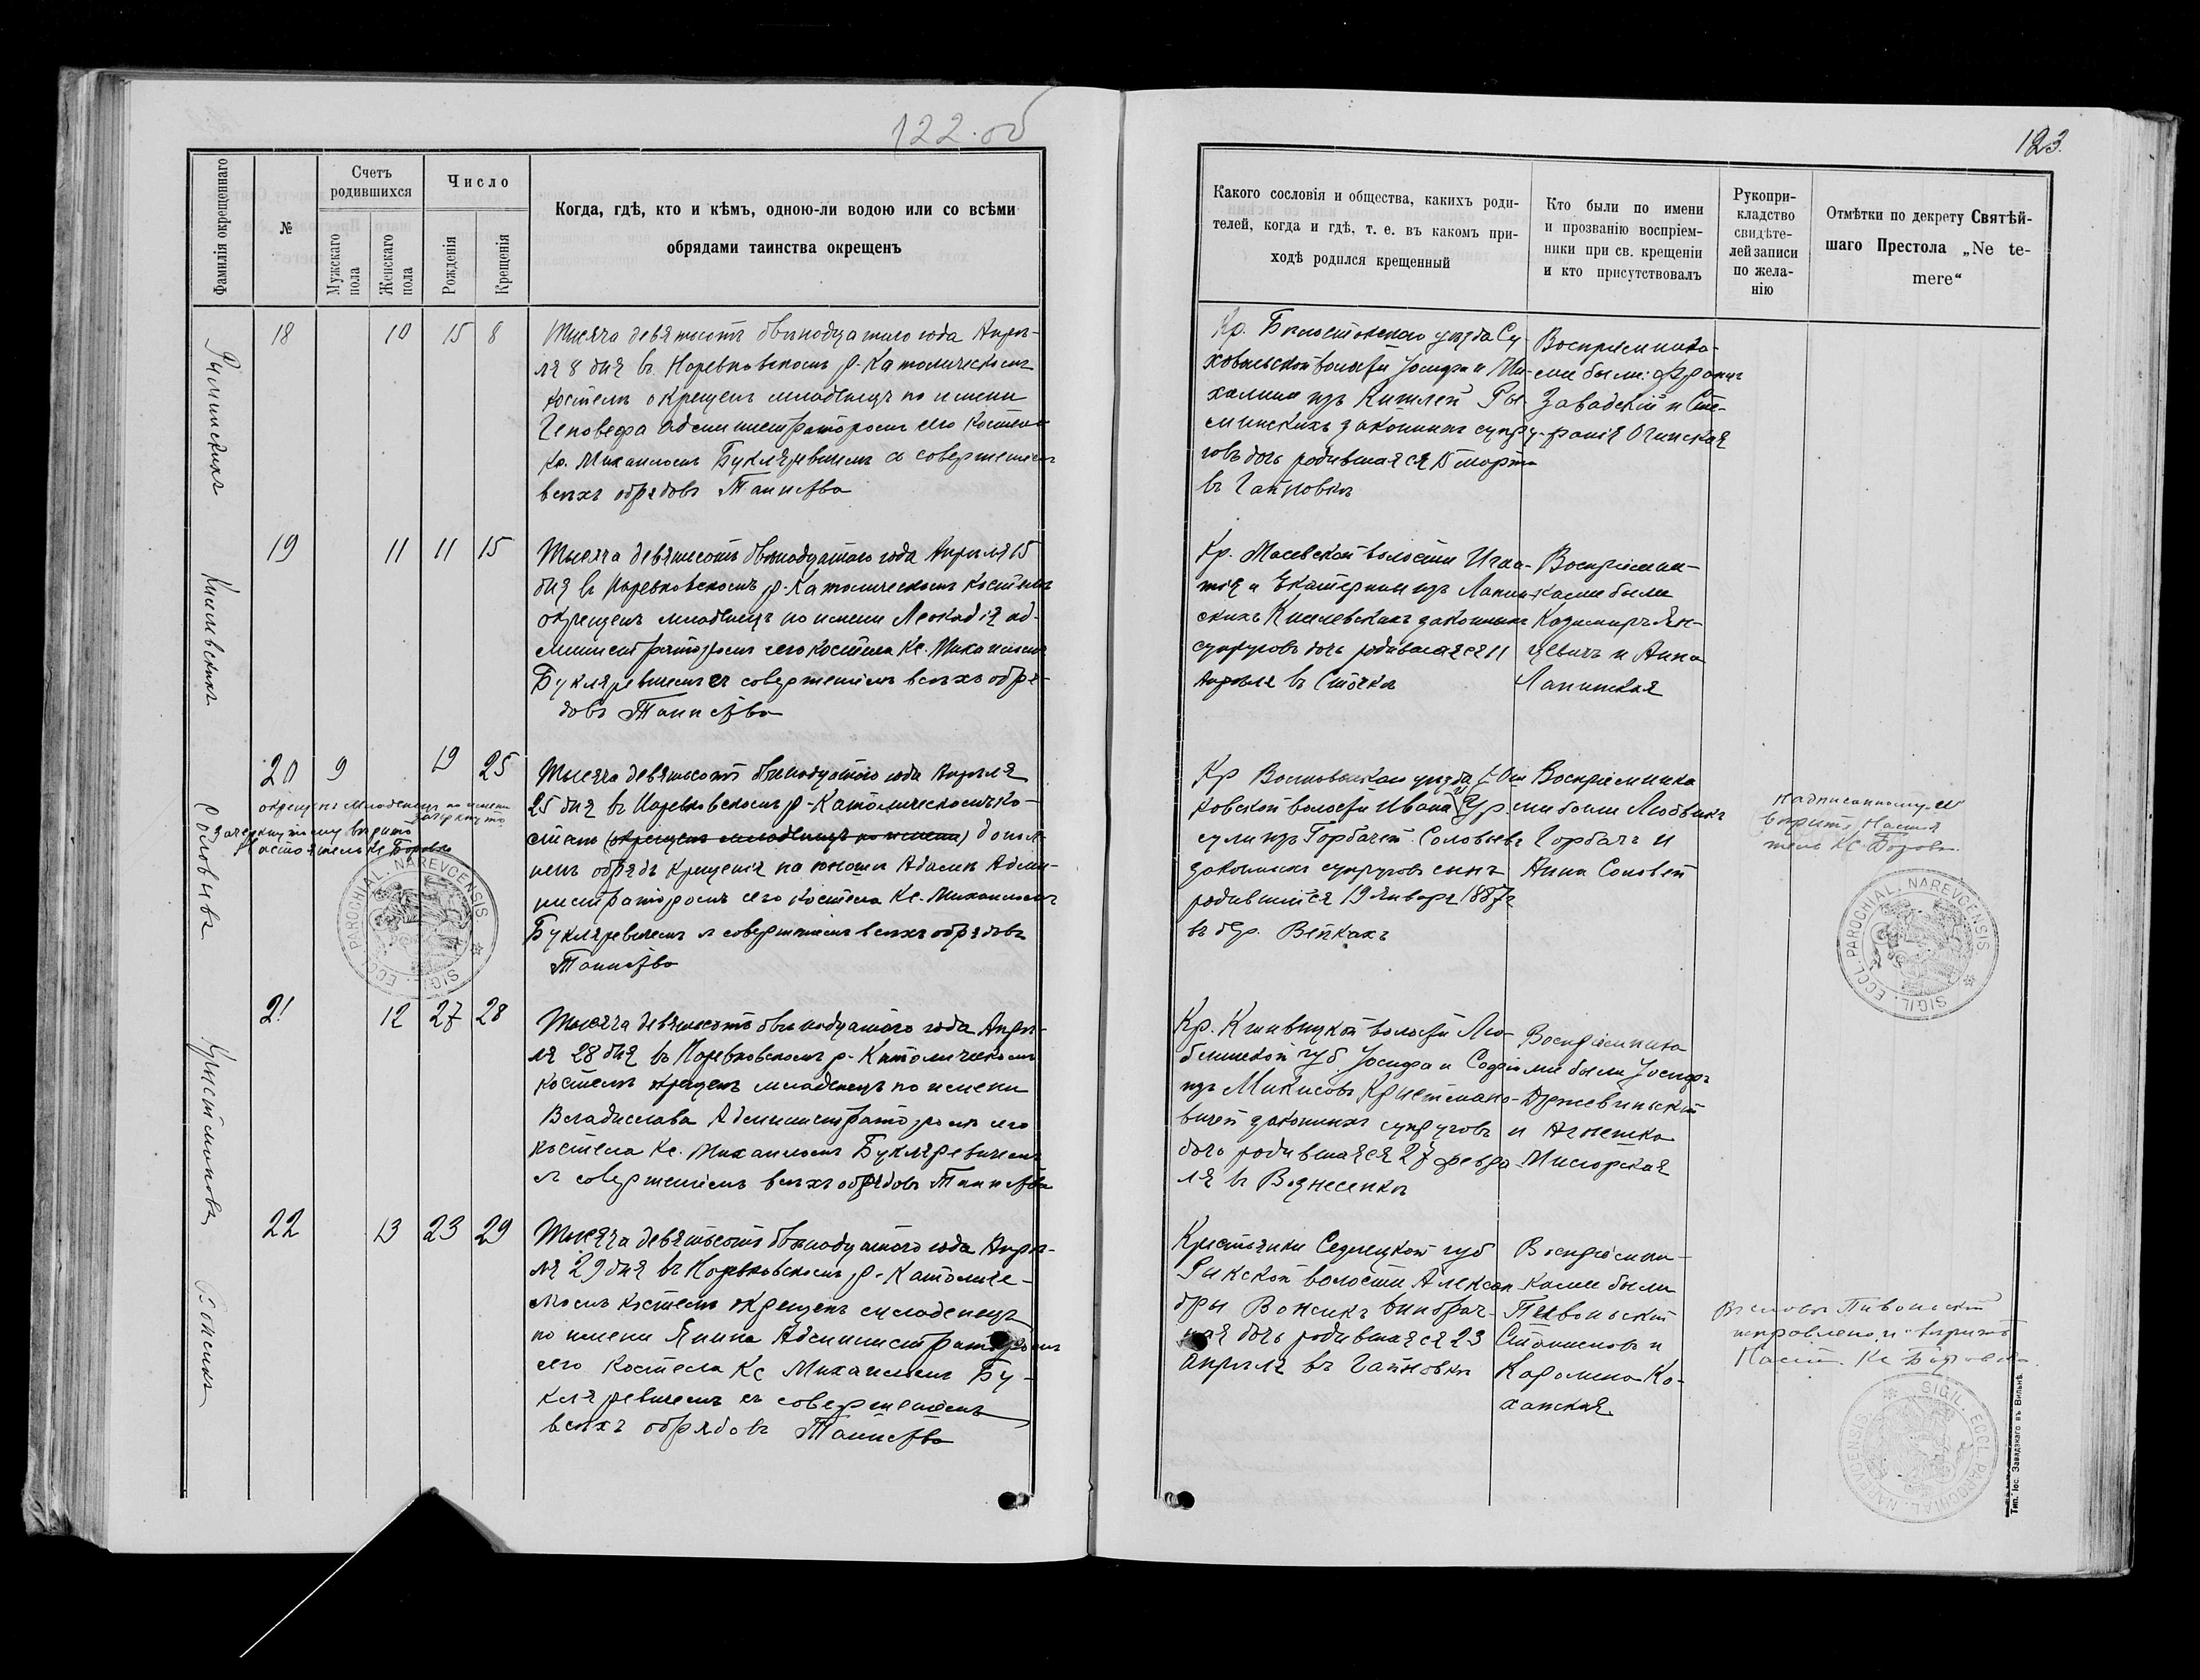 122.об
Фамилія окрещеннаго
№
Счетъ
родившихся
Мужскаго
пола
Женскаго
пола
Число
Рожденія
Крещенія
Когда, гдѣ, кто и кѣмъ, одною-ли водою или со всѣми
обрядами таинства окрещенъ
18 10 15 8
Тысяча девятьсотъ двѣнадцатаго года Апрѣ-
ля 8 дня въ Наревковскомъ р-Католическомъ
костелѣ окрещенъ младенецъ по имени
Геновефа администраторомъ сего костела
Кс. Михаиломъ Букляревичемъ съ совершеніемъ
всѣхъ обрядовъ Таинства
19 11 11 15
Кисилевскихъ
Тысяча девятьсотъ двѣнадцатаго года Апрѣля 15
дня въ Наревковскомъ р-Католическомъ костелѣ
окрещенъ младенецъ по имени Леокадія ад-
министраторомъ сего костела Кс. Михаиломъ
Букляревичемъ съ совершеніемъ всѣхъ обря-
довъ Таинства
20 9 19 25
окрещенъ младенецъ по имени
зачеркнуто
зачеркнутому вѣрить
Настоятель Кс
Тысяча девятьсотъ двѣнадцатаго года Апрѣля
25 дня въ Наревковскомъ р-Католическомъ ко-
стелѣ (окрещенъ младенецъ по имени) допол-
ненъ обрядъ Крещенія на юноши Адамѣ Адми-
нистраторомъ сего костела Кс. Михаиломъ
Букляревичемъ съ совершеніемъ всѣхъ обрядовъ
Таинства
SIGIL. ECCL. PAROCHIAL. NAREVCENSIS
21 12 27 28
Тысяча девятьсотъ двѣнадцатаго года Апрѣ-
ля 28 дня въ Наревковскомъ р-Католическомъ
костелѣ окрещенъ младенецъ по имени
Владислава Администраторомъ сего
костела Кс. Михаиломъ Букляревичемъ
съ совершеніемъ всѣхъ обрядовъ Таинства
22 13 23 29
Тысяча девятьсотъ двѣнадцатаго года Апрѣ-
ля 29 дня въ Наревковскомъ р-Католиче-
скомъ костелѣ окрещенъ младенецъ
по имени Янина Администраторомъ
сего костела Кс Михаиломъ Бу-
кляревичемъ съ совершеніемъ
всѣхъ обрядовъ Таинства
123.
Какого сословія и общества, какихъ роди-
телей, когда и гдѣ, т. е. въ какомъ при-
ходѣ родился крещенный
Кто были по имени
и прозванію воспріем-
ники при св. крещеніи
и кто присутствовалъ
Рукопри-
кладство
свидѣте-
лей записи
по жела-
нію
Отмѣтки по декрету Святѣй-
шаго Престола „Ne te-
mere“
Кр. Бѣлостокскаго уѣзда Су-
ховольской волости Іосифа и Ми-
халины изъ Ры-
минскихъ законныхъ супру-
говъ дочь родившаяся 15 марта
въ Гайновкѣ
Воспріемника-
ми были: Францъ
Завадскій и Сте-
фанія Огинская
Кр. Масевской волости Игна-
тія и Екатерины изъ Лапин-
скихъ Киселевскихъ законныхъ
супруговъ дочь родившаяся 11
Апрѣля въ Сточкѣ
Воспріемни-
ками были
Казимиръ Ян-
цевичъ и Анна
Лапинская
Кр Волковыскаго уѣзда
ковской волости Ивана и Ур-
сули изъ Горбачей Соловьевъ
законныхъ супруговъ сынъ
родившійся 19 Января 1887 г
въ дер. Вейкахъ
Воспріемника
ми были Людвикъ
Горбачъ и
Анна Соловей
надписанному
вѣрить Настоя
тель Кс.
SIGIL. ECCL. PAROCHIAL. NAREVCENSIS
Кр. волости Лю-
блинской губ. Іосифа и Софіи
изъ Микисовъ Кристмано-
вичей законныхъ супруговъ
дочь родившаяся 27 февра-
ля въ Вознесенкѣ
Воспріемника
ми были Іосифъ
и Агнешка
Крестьянки Седлецкой губ
Рыкской волости Алексан-
дры Вонсикъ внѣбрач-
ная дочь родившаяся 23
Апрѣля въ Гайновкѣ
Воспріемни-
ками были
Пивоньскій
Станиславъ и
Каролина Ко-
ханская
Въ словѣ Пивоньскій
исправлено и вѣрить
Наст. Кс
SIGIL. ECCL. PAROCHIAL. NAREVCENSIS
Тип. Іос. Завадзкаго въ Вильнѣ.